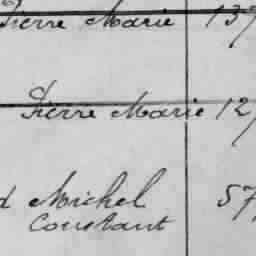 Pierre Marie 137
Pierre Marie 127
d Michel 57
Constant